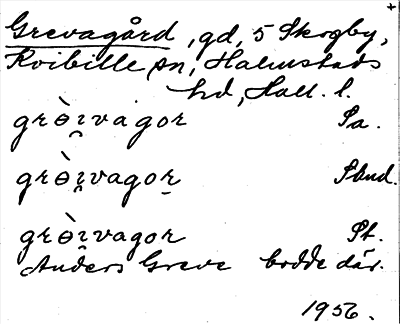 Grevagård, gd, 5 Skogby,
Kvibille sn, Halmstads
hd, Hall. l.
grɵ̀ı̯vagor Sa.
grɵ̀ı̯vagor̠ Sbud.
grɵ̀ı̯vagor St.
Anders Greve bodde där.
1956.